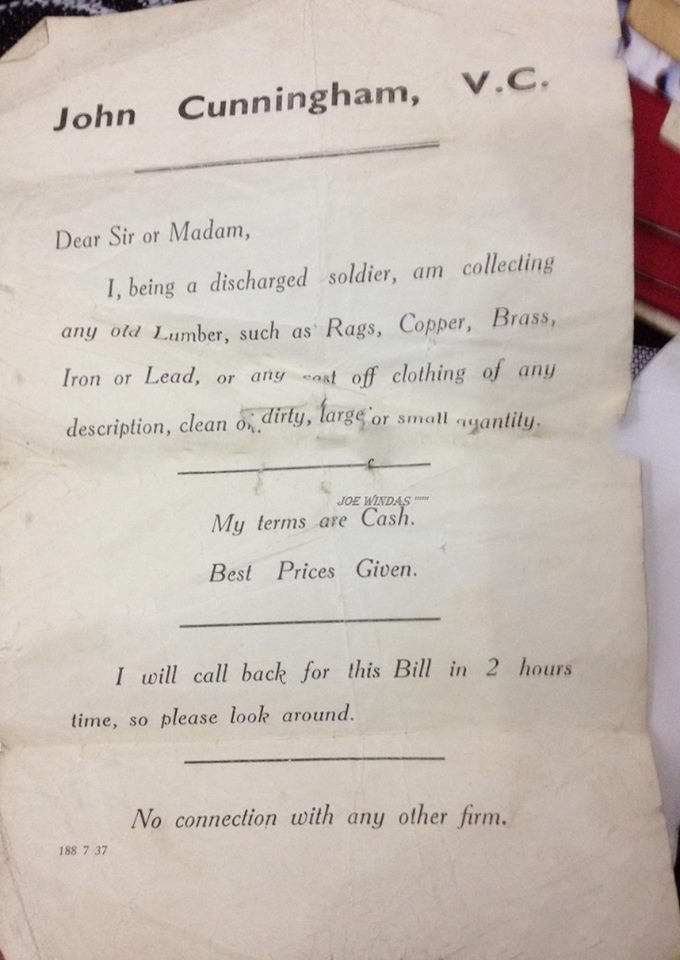 John Cunningham, V.C.
Dear Sir or Madam,
I, being a discharged soldier, am collecting
any old Lumber, such as Rags, Copper, Brass,
Iron or Lead, or any cast off clothing of any
description, clean or dirty, large or small quantity.
JOE WINDAS
My terms are Cash.
Best Prices Given.
I will call back for this Bill in 2 hours
time, so please look around.
No connection with any other firm.
188 7 37